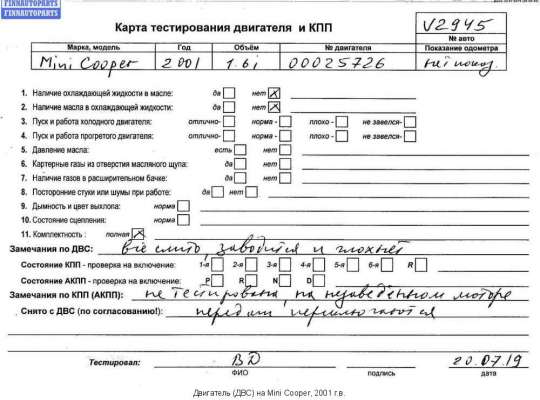 FINNAUTOPARTS
Карта тестирования двигателя и КПП
V2945
№ авто
Марка, модель Год Объём № двигателя Показание одометра
Mini Cooper 2001 1.6i 00025726
1. Наличие охлаждающей жидкости в масле: да нет X
2. Наличие масла в охлаждающей жидкости: да нет X
3. Пуск и работа холодного двигателя: отлично- норма - плохо - не завелся-
4. Пуск и работа прогретого двигателя: отлично- норма - плохо - не завелся-
5. Давление масла: есть нет
6. Картерные газы из отверстия масляного щупа: да нет
7. Наличие газов в расширительном бачке: да нет
8. Посторонние стуки или шумы при работе: да нет
9. Дымность и цвет выхлопа: норма
10. Состояние сцепления: норма
11. Комплектность : полная X
Замечания по ДВС: всё слито, заводится и глохнет
Состояние КПП - проверка на включение: 1-я 2-я 3-я 4-я 5-я 6-я R
Состояние АКПП - проверка на включение: P R N D
Замечания по КПП (АКПП): не тестирована, на незаведённом моторе
Снято с ДВС (по согласованию!): передачи переключаются
Тестировал: ВД 20.07.19
ФИО подпись дата
Двигатель (ДВС) на Mini Cooper, 2001 г.в.